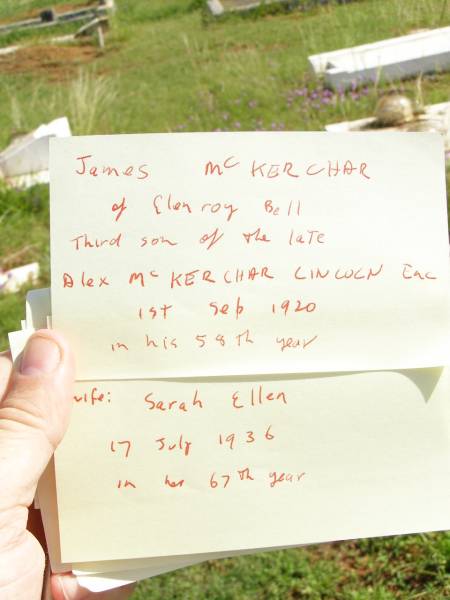 James McKERCHAR
of Glenroy Bell
Third son of the late
Alex McKERCHAR LINCOLN Eng
1st Sep 1920
in his 58th year
wife: Sarah Ellen
17 July 1936
in her 67th year